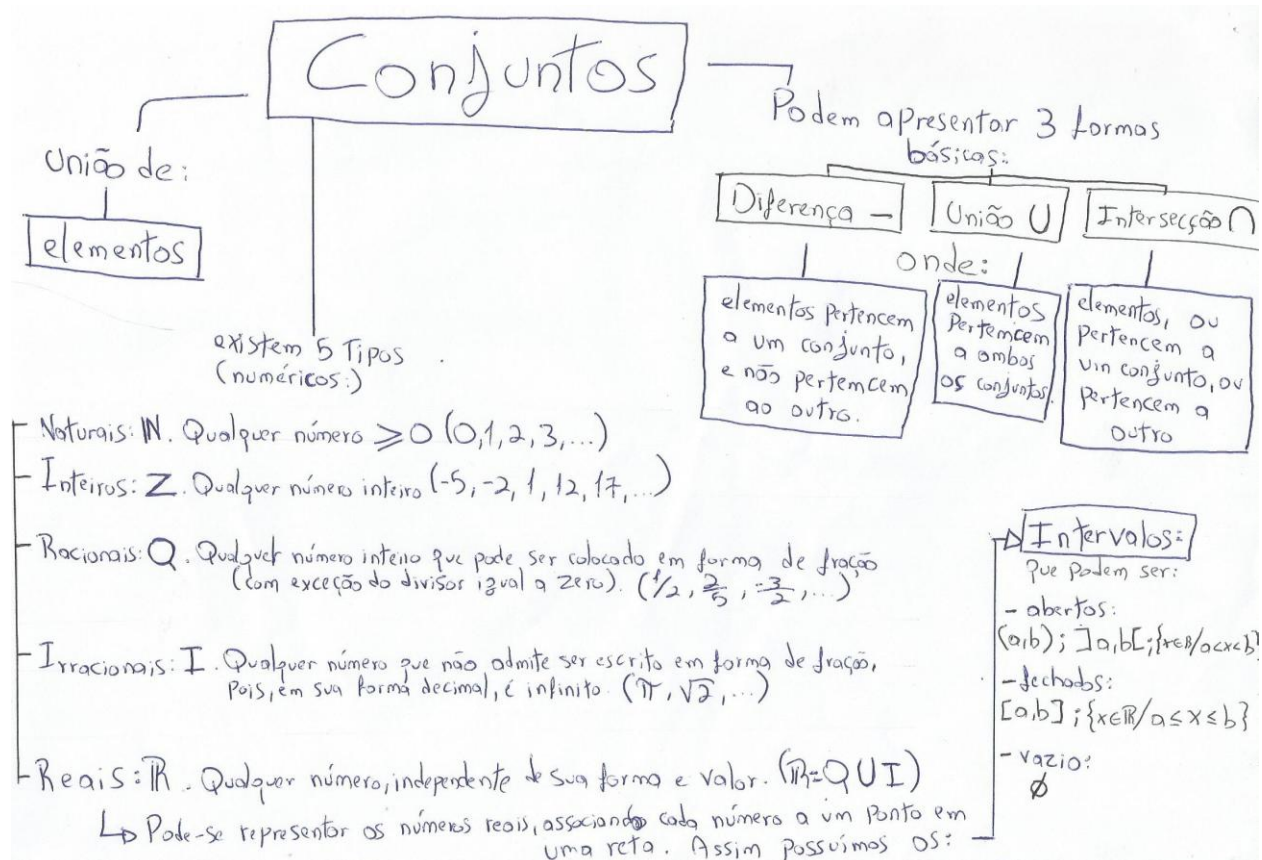 Conjuntos
União de:
elementos
Podem apresentar 3 formas
básicas:
Diferença —
União U
Intersecção ∩
onde:
elementos pertencem
a um conjunto,
e não pertemcem
ao outro.
elementos
Pertemcem
a ambos
os conjuntos.
elementos, ou
pertencem a
um conjunto, ou
pertencem a
outro
existem 5 Tipos
(numéricos:)
Naturais: ℕ. Qualquer número ⩾ 0 (0,1,2,3,...)
Inteiros: Z. Qualquer número inteiro (-5,-2,1,12,17,...)
Racionais: Q. Qualquer número inteiro que pode ser colocado em forma de fração
(com exceção do divisor igual a zero). (1/2, 2/5, -3/2,...)
Irracionais: I. Qualquer número que não admite ser escrito em forma de fração,
pois, em sua forma decimal, é infinito. (π, √2,...)
Reais: ℝ. Qualquer número, independente de sua forma e valor. (ℝ=QUI)
↳ Pode-se representar os números reais, associando cada número a um ponto em
uma reta. Assim possuímos os:
Intervalos:
que podem ser:
- abertos:
(a,b); ]a,b[; {x∈ℝ/a<x<b}
- fechados:
[a,b]; {x∈ℝ/a≤x≤b}
- vazio:
∅